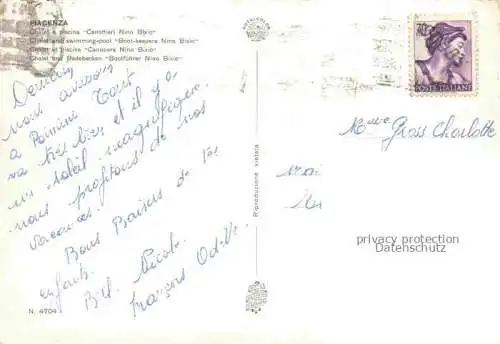 PIACENZA
Chalet e piscina "Canottieri Nino Bixio"
Chalet and swimming-pool "Boat-keepers Nino Bixio"
Chalet et piscine "Canotiers Nino Bixio"
Chalet und Badebecken "Bootführer Nino Bixio"
Demain
nous arrivons
a Tout
va très bien, et il y a
un soleil magnifique
nous profitons de nos
vacances.
Bons Baisers de
enfants.
Nicole
François Odette
N. 4704
Riproduzione vietata
70
POSTE ITALIANE
Mme Gross Charlotte
privacy protection
Datenschutz